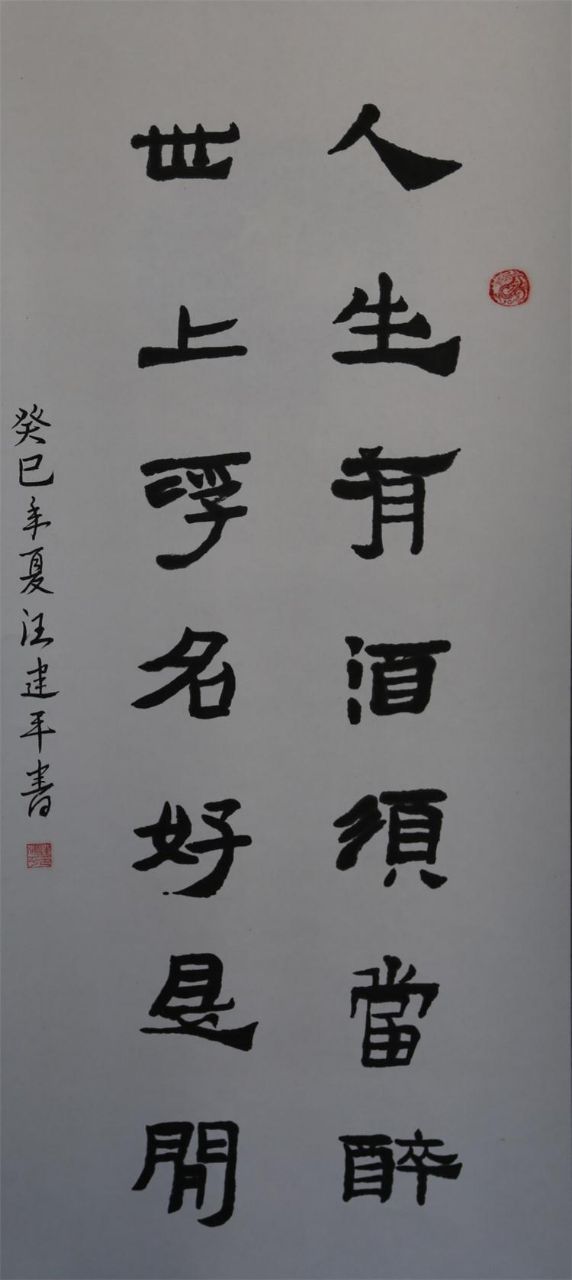 人生有酒須當醉
世上浮名好是閒
癸巳年夏汪建平書